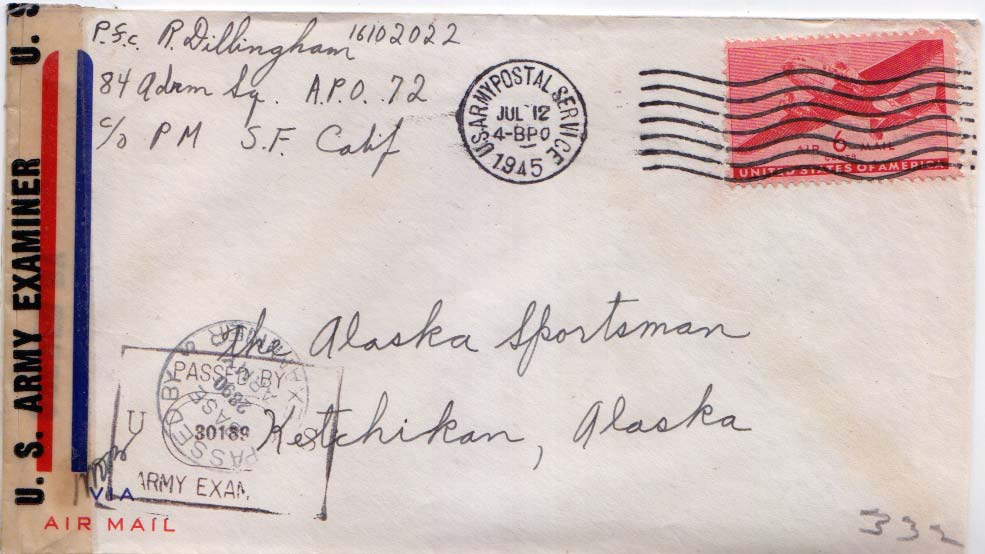 P.F.C. R. Dillingham 16102022
84 Adrm Sq. A.P.O. 72
c/o PM S.F. Calif
U.S. ARMY POSTAL SERVICE
JUL 12
4-BPO
1945
6
AIR MAIL
CENTS
UNITED STATES OF AMERICA
U. S. ARMY EXAMINER U. S
The Alaska Sportsman
Ketchikan, Alaska
PASSED BY
U
30189
ARMY EXAM
PASSED BY
BASE
VIA
AIR MAIL
332